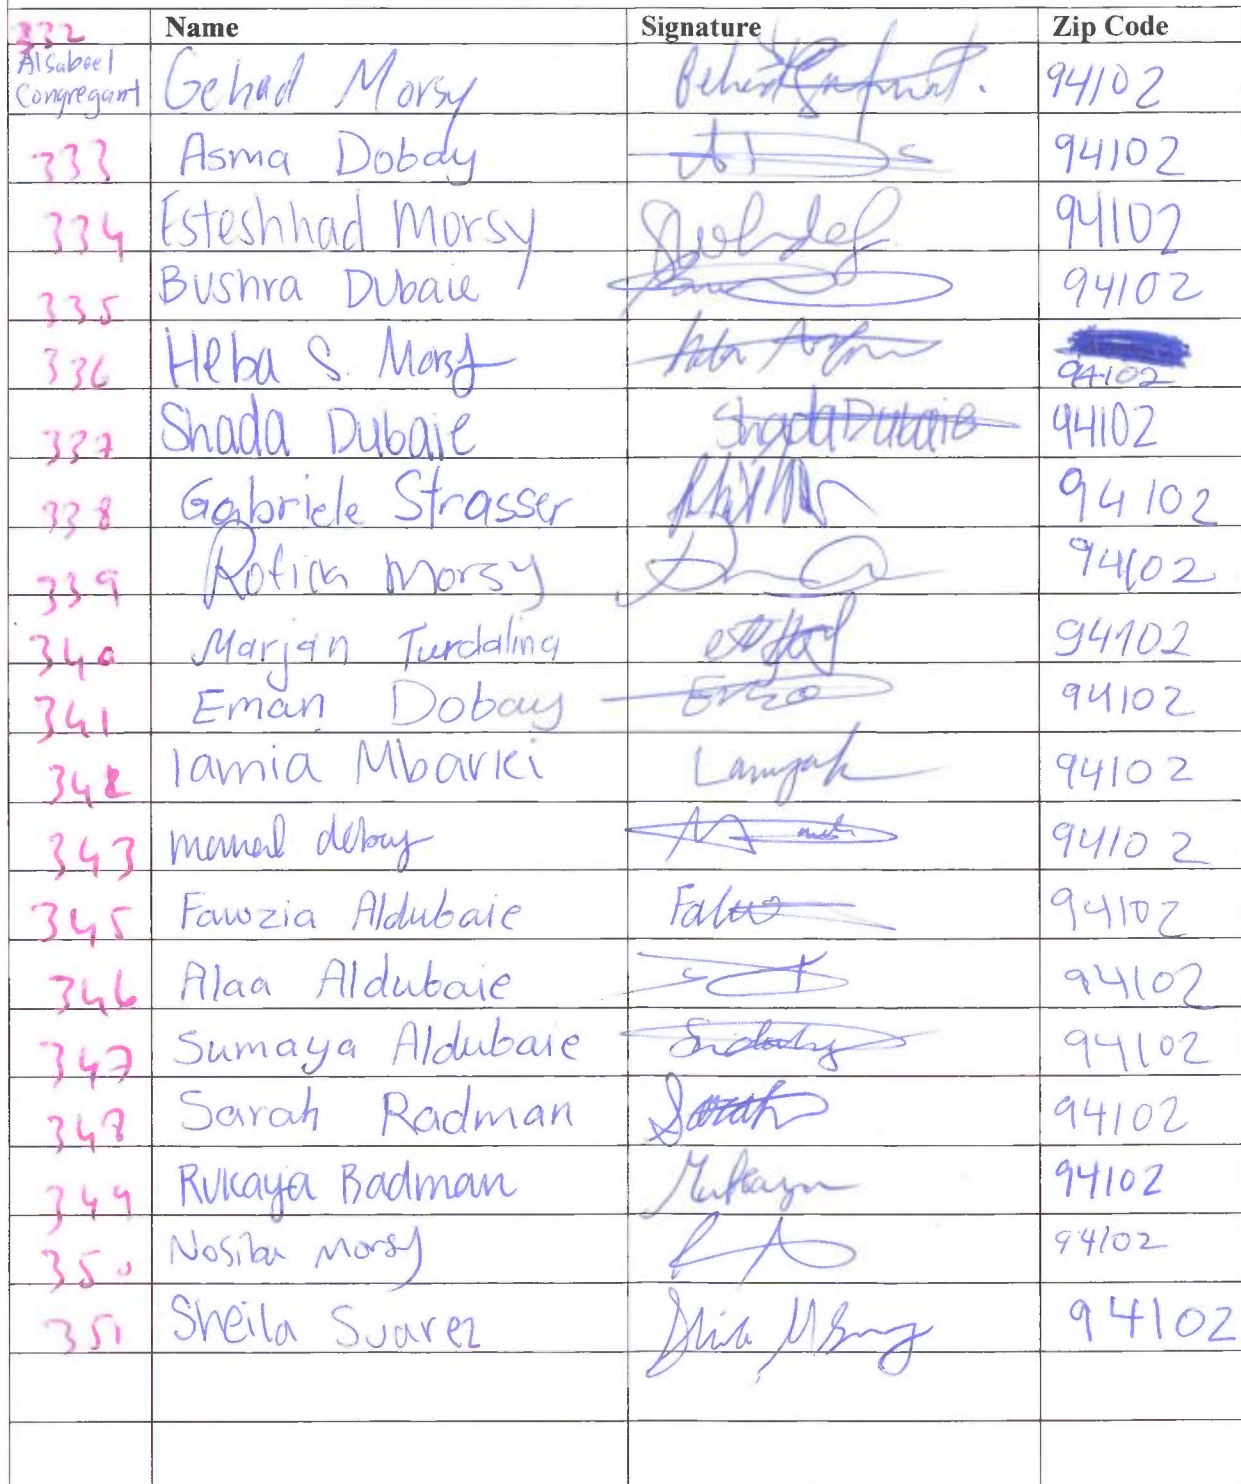 332 Name Signature Zip Code
Alsabeel
Congregant Gehad Morsy 94102
333 Asma Dobay 94102
334 Esteshhad Morsy 94102
335 Bushra Dubaie 94102
336 Heba S. Morsy 94102
337 Shada Dubaie Shada Dubaie 94102
338 Gabriele Strasser 94102
339 Rofida Morsy 94102
340 Marjan Turdalina 94102
341 Eman Dobay 94102
342 lamia Mbarki Lamyah 94102
343 manal debay 94102
345 Fawzia Aldubaie 94102
346 Alaa Aldubaie 94102
347 Sumaya Aldubaie 94102
348 Sarah Radman Sarah 94102
349 Rukaya Radman Rukaya 94102
350 Nosiba Morsy 94102
351 Sheila Suarez 94102